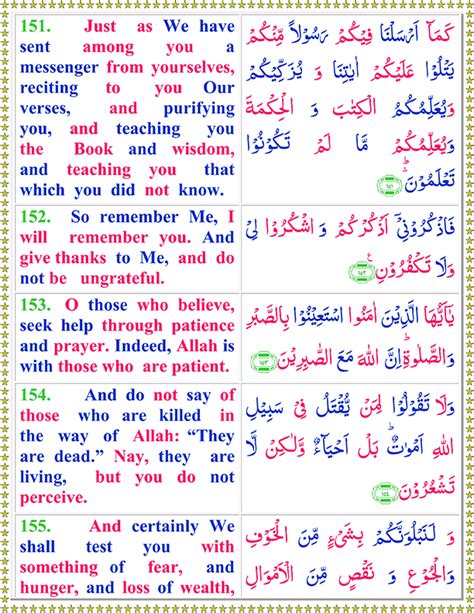 151. Just as We have
sent among you a
messenger from yourselves,
reciting to you Our
verses, and purifying
you, and teaching you
the Book and wisdom,
and teaching you that
which you did not know.
كَمَآ اَرْسَلْنَا فِيْكُمْ رَسُوْلًا مِّنْكُمْ
يَتْلُوْا عَلَيْكُمْ اٰيٰتِنَا وَ يُزَكِّيْكُمْ
وَيُعَلِّمُكُمُ الْكِتٰبَ وَ الْحِكْمَةَ
وَيُعَلِّمُكُمْ مَّا لَمْ تَكُوْنُوْا
تَعْلَمُوْنَ ؕ ١٥١
152. So remember Me, I
will remember you. And
give thanks to Me, and do
not be ungrateful.
فَاذْكُرُوْنِيْٓ اَذْكُرْكُمْ وَ اشْكُرُوْا لِيْ
وَلَا تَكْفُرُوْنِ ١٥٢
153. O those who believe,
seek help through patience
and prayer. Indeed, Allah is
with those who are patient.
يٰٓاَيُّهَا الَّذِيْنَ اٰمَنُوا اسْتَعِيْنُوْا بِالصَّبْرِ
وَالصَّلٰوةِ ؕ اِنَّ اللّٰهَ مَعَ الصّٰبِرِيْنَ ١٥٣
154. And do not say of
those who are killed in
the way of Allah: “They
are dead.” Nay, they are
living, but you do not
perceive.
وَلَا تَقُوْلُوْا لِمَنْ يُّقْتَلُ فِيْ سَبِيْلِ
اللّٰهِ اَمْوَاتٌ ؕ بَلْ اَحْيَآءٌ وَّلٰكِنْ لَّا
تَشْعُرُوْنَ ١٥٤
155. And certainly We
shall test you with
something of fear, and
hunger, and loss of wealth,
وَ لَنَبْلُوَنَّكُمْ بِشَيْءٍ مِّنَ الْخَوْفِ
وَالْجُوْعِ وَ نَقْصٍ مِّنَ الْاَمْوَالِ